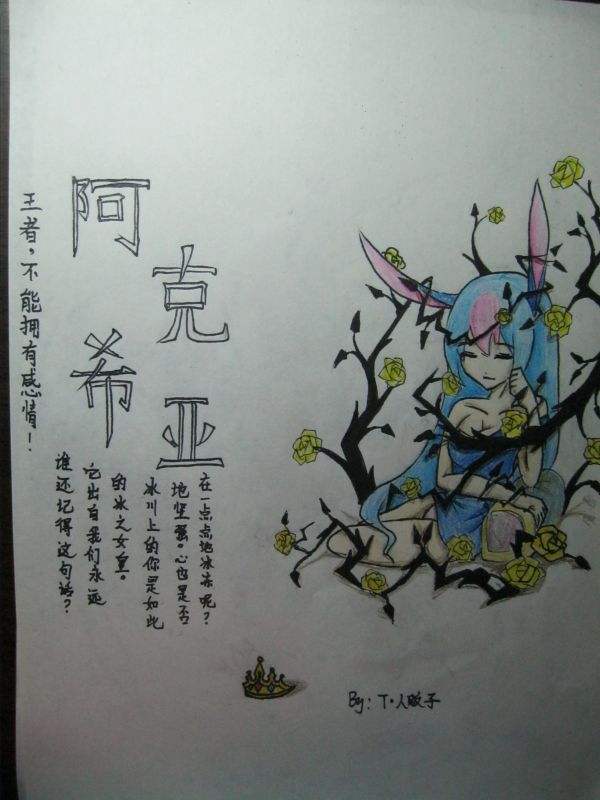 王者，不能拥有感情！
阿克希亚
谁还记得这句话？
它出自我们永远
的冰之女皇。
冰川上的你是如此
地坚强。心也是否
在一点点地冰冻呢？
By：T·人贩子